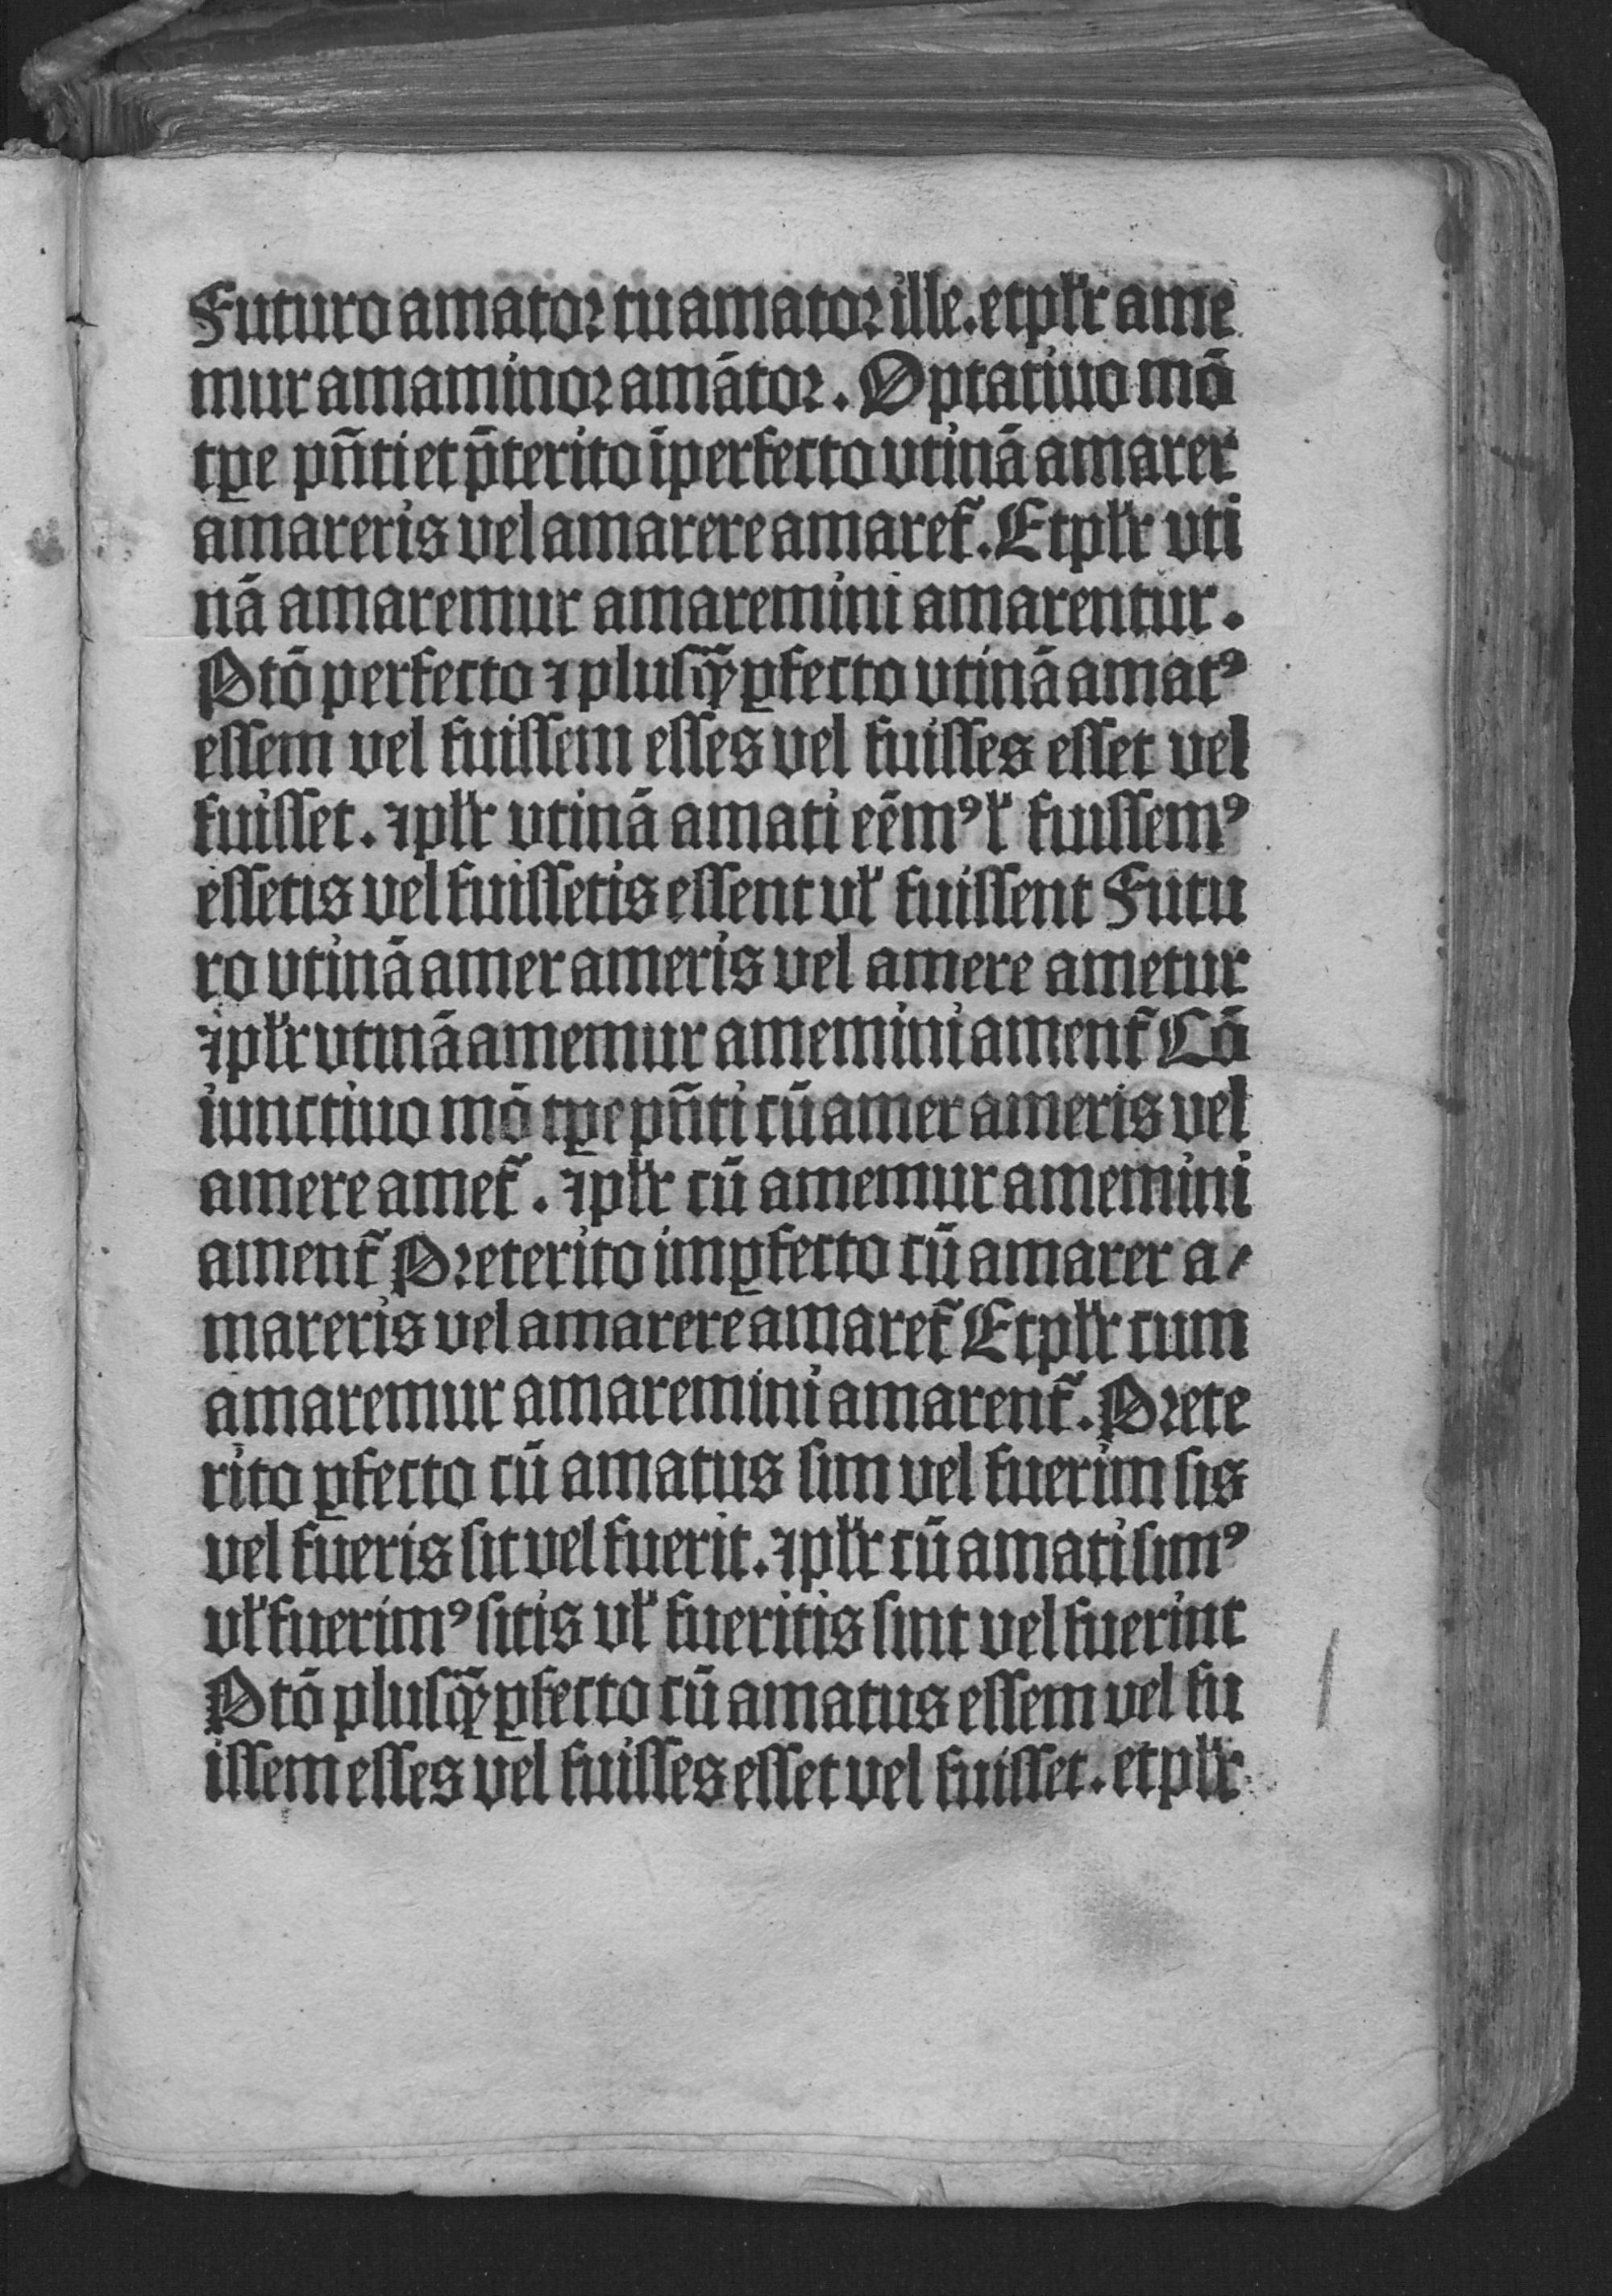 Futuro amator tu amator ille. et pl̃r ame
mur amaminor amātor. Optatiuo mō
tꝑe pñti et p̄terito īperfecto vtinā amarer
amareris vel amarere amaret᷑. Et pl̃r vti
nā amaremur amaremini amarentur.
Ptō perfecto ⁊ plusq̄ꝑfecto vtinā amatꝰ
essem vel fuissem esses vel fuisses esset vel
fuisset. ⁊ pl̃r vtinā amati eēmꝰ ł fuissemꝰ
essetis vel fuissetis essent vł fuissent Futu
ro vtinā amer ameris vel amere ametur
⁊ pl̃r vtinā amemur amemini ament᷑ Cō
iunctiuo mō tꝑe pñti cū amer ameris vel
amere amet᷑. ⁊ pl̃r cū amemur amemini
ament᷑ Preterito imꝑfecto cū amarer a⸗
mareris vel amarere amaret᷑ Et pl̃r cum
amaremur amaremini amarent᷑. Prete
rito ꝑfecto cū amatus sim vel fuerim sis
vel fueris sit vel fuerit. ⁊ pl̃r cū amati simꝰ
vł fuerimꝰ sitis vł fueritis sint vel fuerint
Ptō plusq̄ꝑfecto cū amatus essem vel fu
issem esses vel fuisses esset vel fuisset. et pl̃r